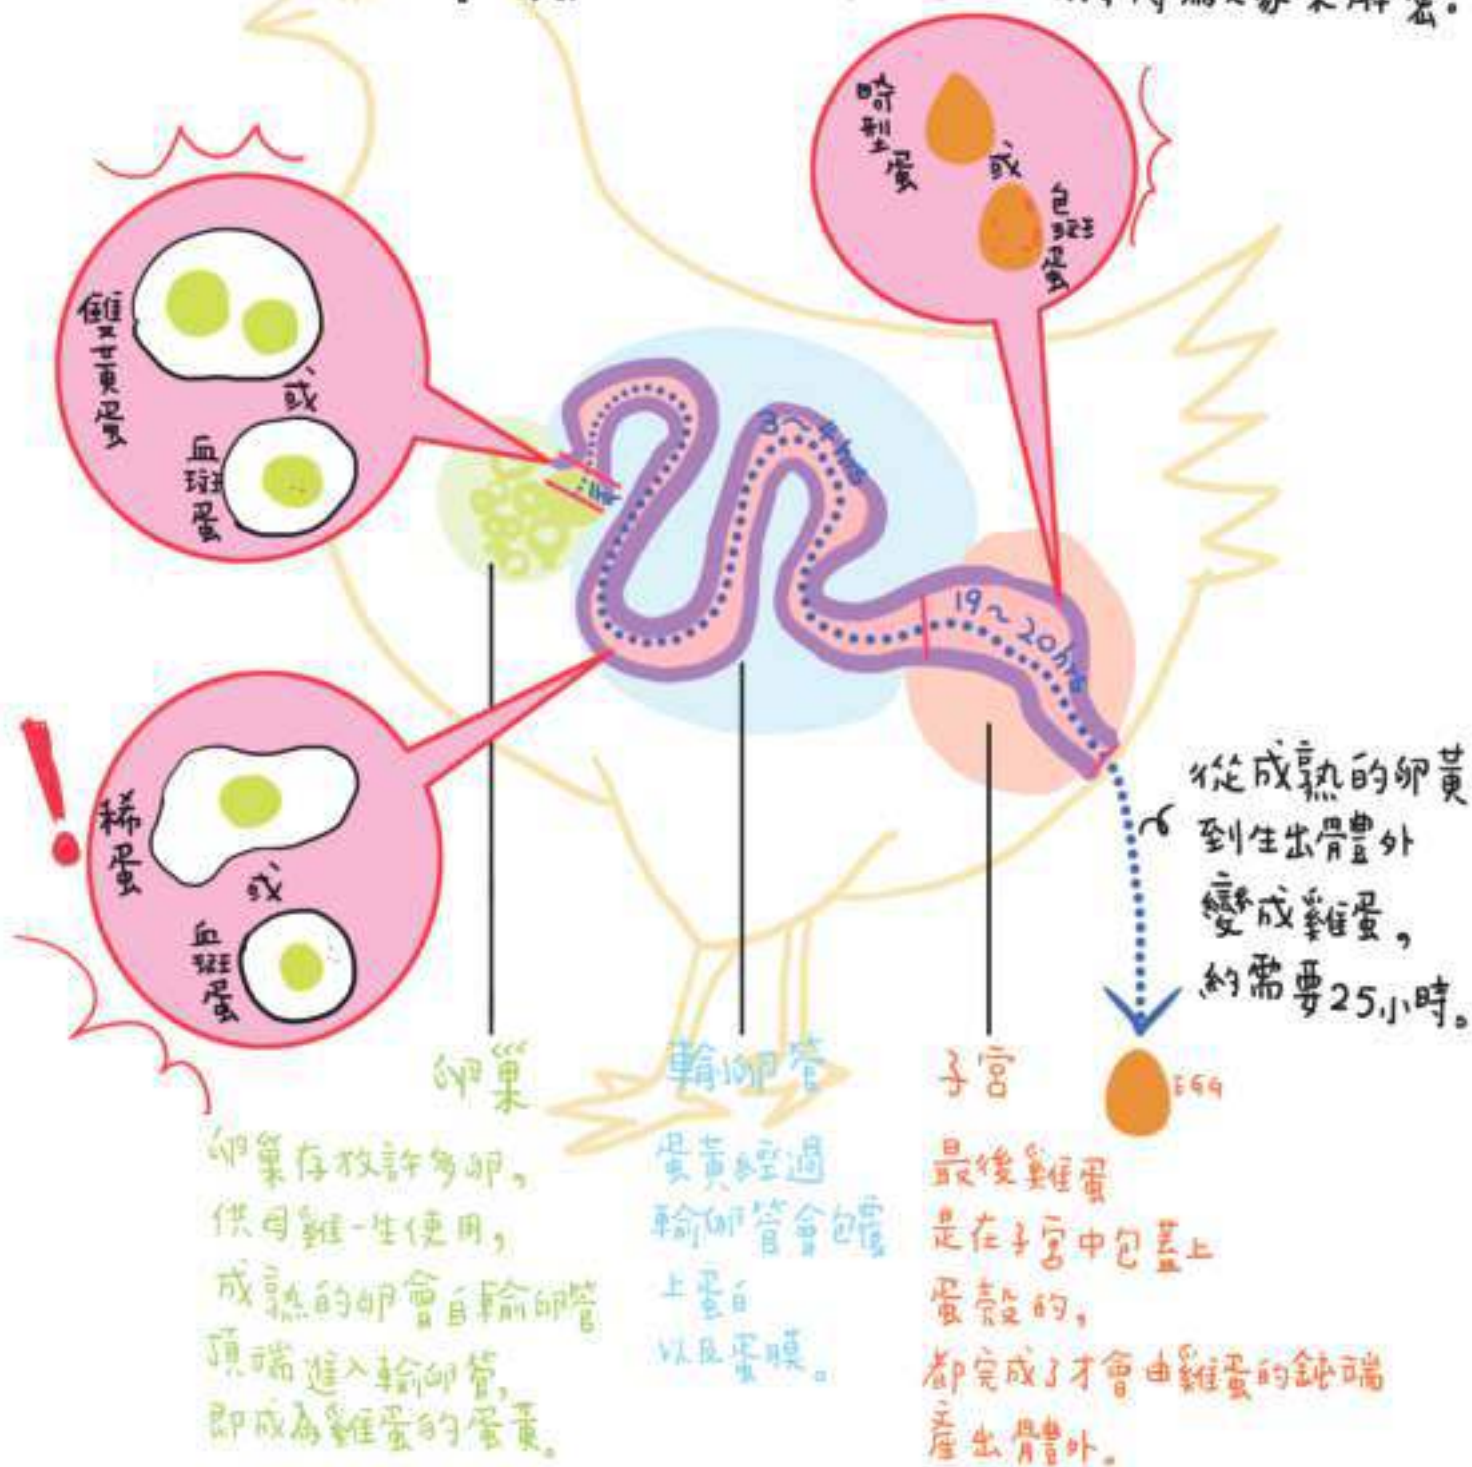 來解密。
畸型蛋
或
色斑蛋
雙黃蛋
或
血斑蛋
3~4hrs
19~20hrs
稀蛋
或
血斑蛋
從成熟的卵黃
到生出體外
變成雞蛋,
約需要25小時。
EGG
卵巢
卵巢存放許多卵,
供母雞一生使用,
成熟的卵會自輸卵管
頂端進入輸卵管,
即成為雞蛋的蛋黃。
輸卵管
蛋黃經過
輸卵管會包覆
上蛋白
以及蛋膜。
子宮
最後雞蛋
是在子宮中包蓋上
蛋殼的,
都完成了才會由雞蛋的鈍端
產出體外。